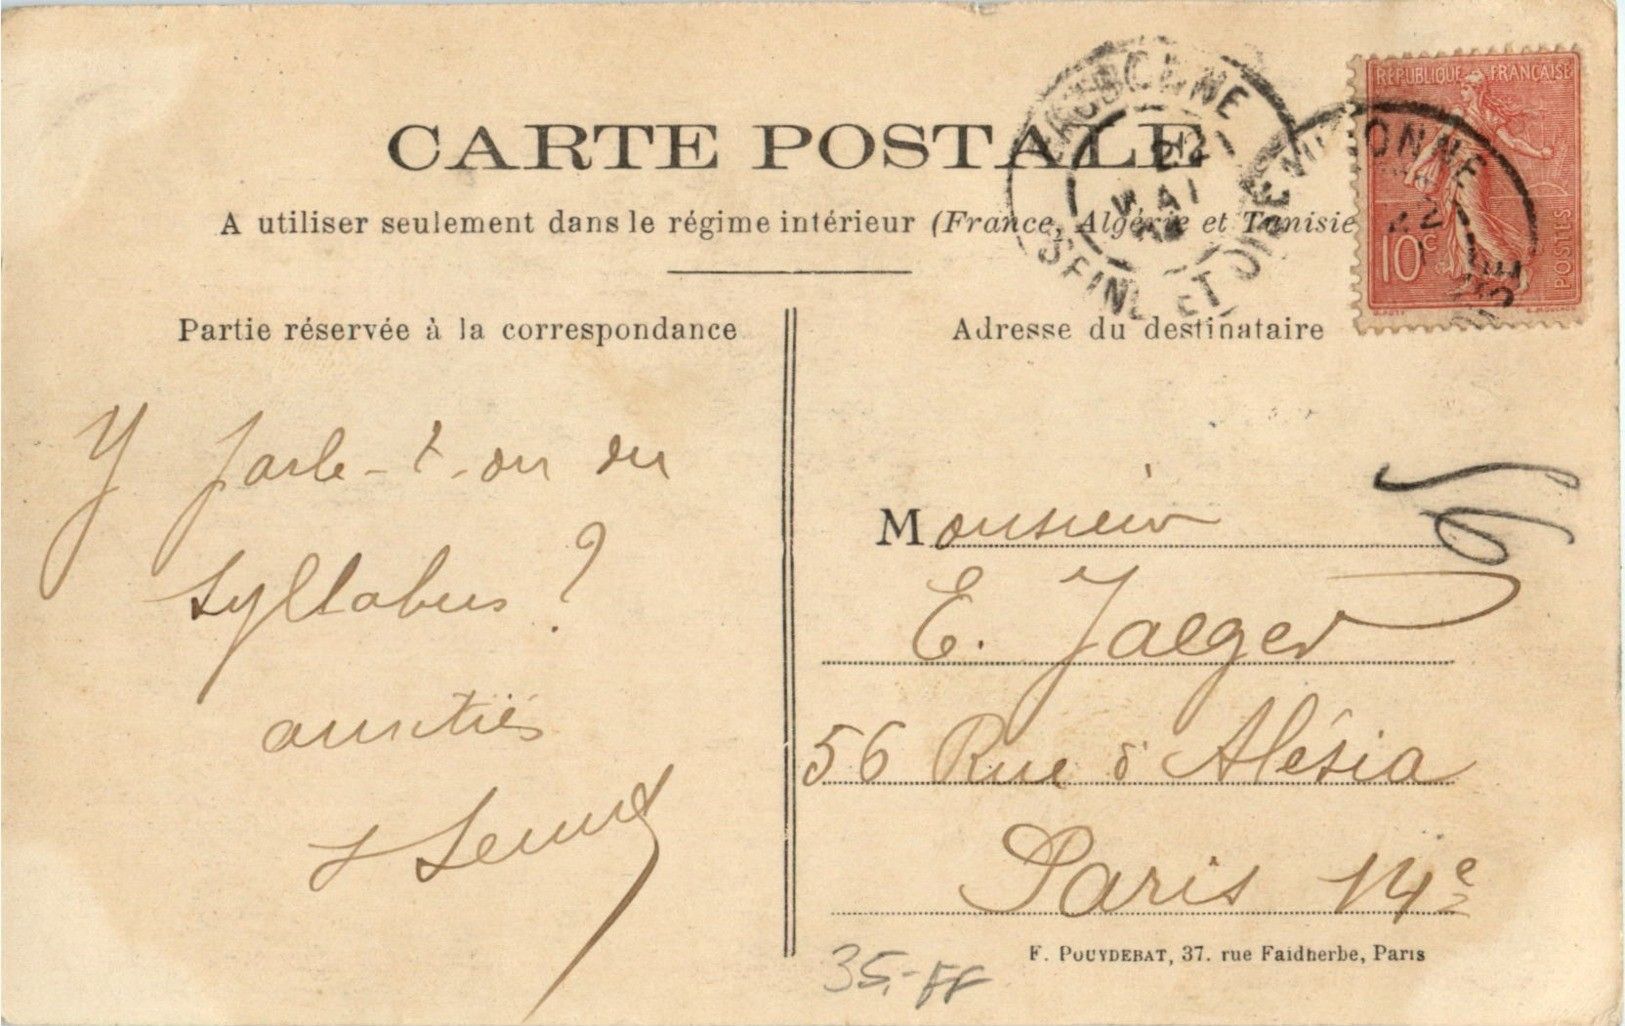 CARTE POSTALE
A utiliser seulement dans le régime intérieur (France, Algérie et Tunisie
REPUBLIQUE FRANÇAISE
10c
POSTES
SEINE ET OISE
22
MAI
Partie réservée à la correspondance
Y parle-t-on du
syllabus ?
amitiés
Adresse du destinataire
Monsieur
E. Jaeger
56 Rue d'Alésia
Paris 14e
F. POUYDEBAT, 37. rue Faidherbe, Paris
35,- FF